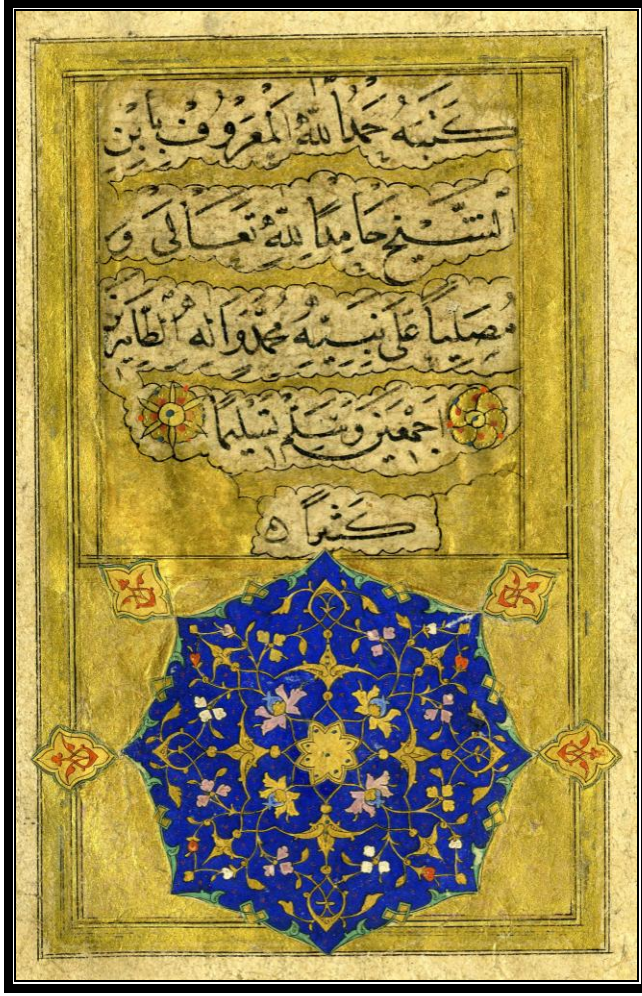 كَتَبَهُ حَمْدُ اللّٰهِ الْمَعْرُوفُ بِابْنِ
الشَّيْخِ حَامِدًا لِلّٰهِ تَعَالَى وَ
مُصَلِّيًا عَلَى نَبِيِّهِ مُحَمَّدٍ وَآلِهِ الطَّاهِرِينَ
اَجْمَعِينَ وَسَلَّمَ تَسْلِيمًا
كَثِيرًا